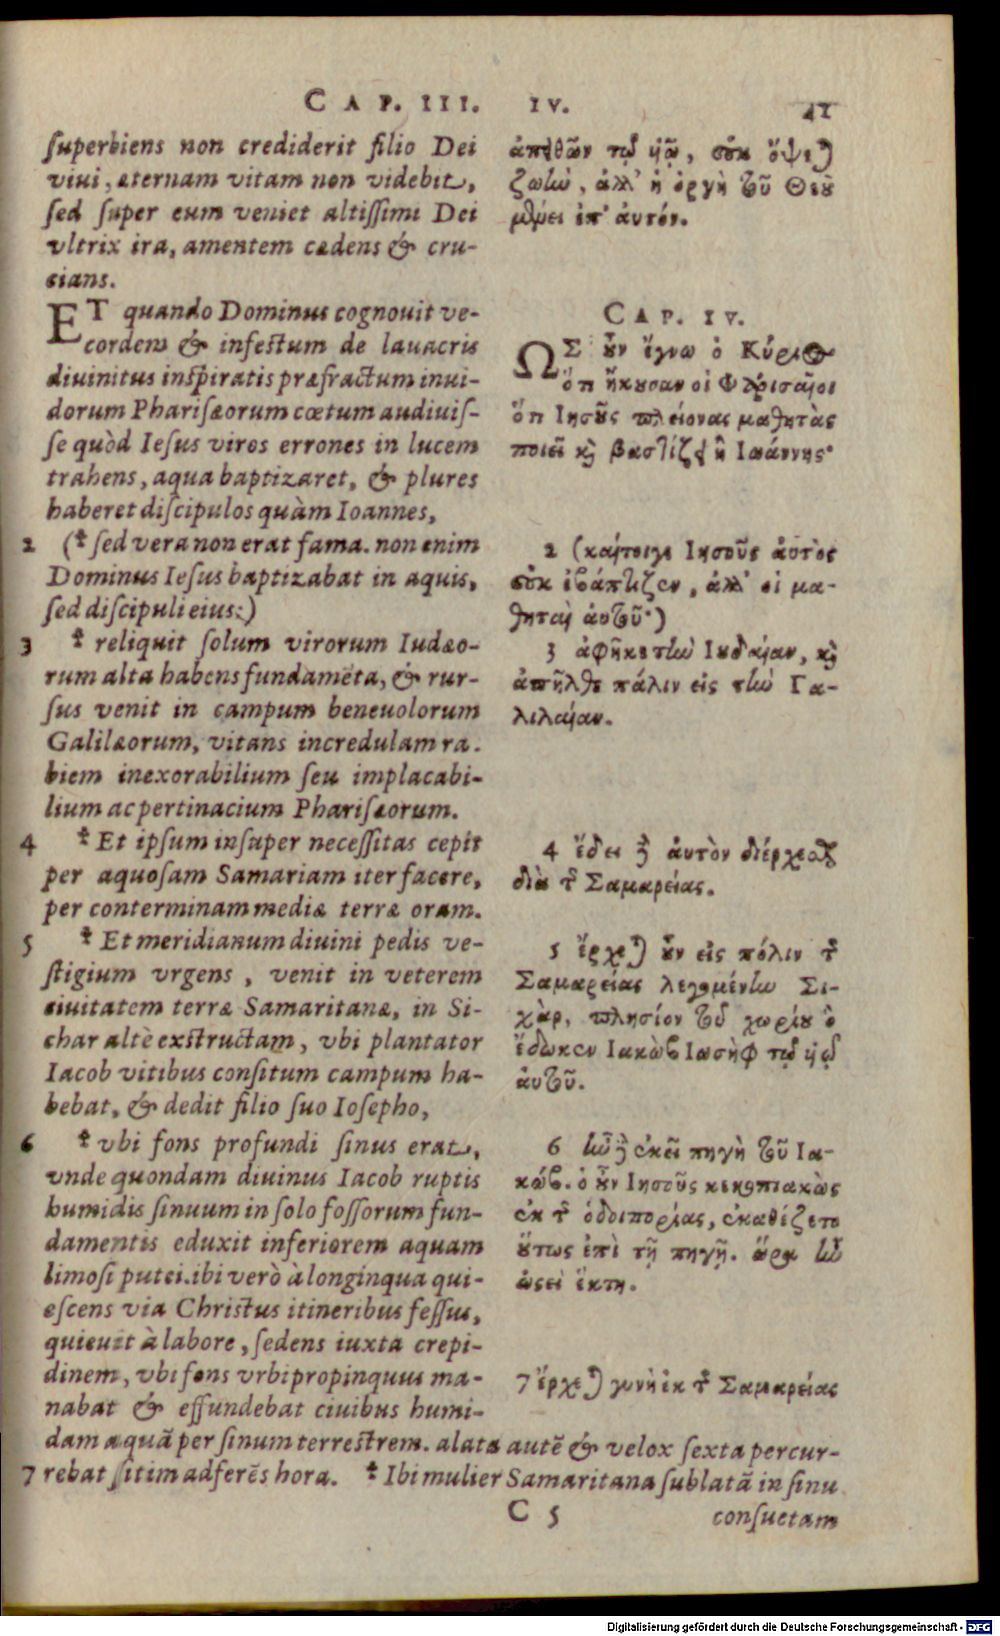 CAP. III. IV. 41
superbiens non crediderit filio Dei
viui, æternam vitam non videbit,
sed super eum veniet altissimi Dei
vltrix ira, amentem cædens & cru-
cians.
ET quando Dominus cognouit ve-
cordem & infestum de lauacris
diuinitus inspiratis præfractum inui-
dorum Pharisæorum cœtum audiuis-
se quòd Iesus viros errones in lucem
trahens, aqua baptizaret, & plures
haberet discipulos quàm Ioannes,
2 (* sed vera non erat fama. non enim
Dominus Iesus baptizabat in aquis,
sed discipuli eius:)
3 * reliquit solum virorum Iudæo-
rum alta habens fundamēta, & rur-
sus venit in campum beneuolorum
Galilæorum, vitans incredulam ra-
biem inexorabilium seu implacabi-
lium ac pertinacium Pharisæorum.
4 * Et ipsum insuper necessitas cepit
per aquosam Samariam iter facere,
per conterminam mediæ terræ oram.
5 * Et meridianum diuini pedis ve-
stigium vrgens, venit in veterem
ciuitatem terræ Samaritanæ, in Si-
char altè exstructam, vbi plantator
Iacob vitibus consitum campum ha-
bebat, & dedit filio suo Iosepho,
6 * vbi fons profundi sinus erat,
vnde quondam diuinus Iacob ruptis
humidis sinuum in solo fossorum fun-
damentis eduxit inferiorem aquam
limosi putei. ibi verò à longinqua qui-
escens via Christus itineribus fessus,
quieuit à labore, sedens iuxta crepi-
dinem, vbi fons vrbi propinquus ma-
nabat & effundebat ciuibus humi-
dam aquā per sinum terrestrem. alata autē & velox sexta percur-
7 rebat sitim adferēs hora. * Ibi mulier Samaritana sublatā in sinu
C 5 consuetam
ἀπειθῶν τῷ ὑῷ, οὐκ ὄψεται
ζωὴν, ἀλλ' ἡ ὀργὴ τοῦ Θεοῦ
μένει ἐπ' αὐτόν.
CAP. IV.
ΩΣ οὖν ἔγνω ὁ Κύριος
ὅτι ἤκουσαν οἱ Φαρισαῖοι
ὅτι Ἰησοῦς πλείονας μαθητὰς
ποιεῖ καὶ βαπτίζει ἢ Ἰωάννης·
2 (καίτοιγε Ἰησοῦς αὐτὸς
οὐκ ἐβάπτιζεν, ἀλλ' οἱ μα-
θηταὶ αὐτοῦ·)
3 ἀφῆκε τὴν Ἰουδαίαν, καὶ
ἀπῆλθε πάλιν εἰς τὴν Γα-
λιλαίαν.
4 ἔδει δὲ αὐτὸν διέρχεσθαι
διὰ τῆς Σαμαρείας.
5 ἔρχεται οὖν εἰς πόλιν τῆς
Σαμαρείας λεγομένην Σι-
χὰρ, πλησίον τοῦ χωρίου ὃ
ἔδωκεν Ἰακὼβ Ἰωσὴφ τῷ ὑῷ
αὐτοῦ.
6 ἦν δὲ ἐκεῖ πηγὴ τοῦ Ἰα-
κώβ. ὁ οὖν Ἰησοῦς κεκοπιακὼς
ἐκ τῆς ὁδοιπορίας, ἐκαθέζετο
οὕτως ἐπὶ τῇ πηγῇ. ὥρα ἦν
ὡσεὶ ἕκτη.
7 ἔρχεται γυνὴ ἐκ τῆς Σαμαρείας
Digitalisierung gefördert durch die Deutsche Forschungsgemeinschaft - DFG